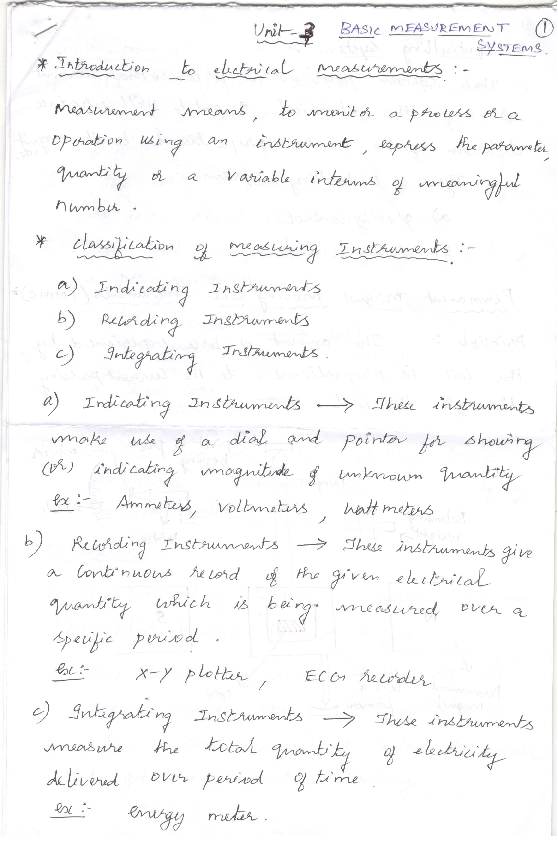 Unit - 3 BASIC MEASUREMENT SYSTEMS. 1
* Introduction to electrical measurements :-
Measurement means, to monitor a process or a
operation using an instrument, express the parameter,
quantity or a variable interms of meaningful
number.
* Classification of measuring Instruments :-
a) Indicating Instruments
b) Recording Instruments
c) Integrating Instruments.
a) Indicating Instruments → These instruments
make use of a dial and pointer for showing
(or) indicating magnitude of unknown quantity
ex :- Ammeters, voltmeters, wattmeters
b) Recording Instruments → These instruments give
a continuous record of the given electrical
quantity which is being measured over a
specific period.
ex :- x-y plotter, ECG recorder
c) Integrating Instruments → These instruments
measure the total quantity of electricity
delivered over period of time.
ex :- energy meter.